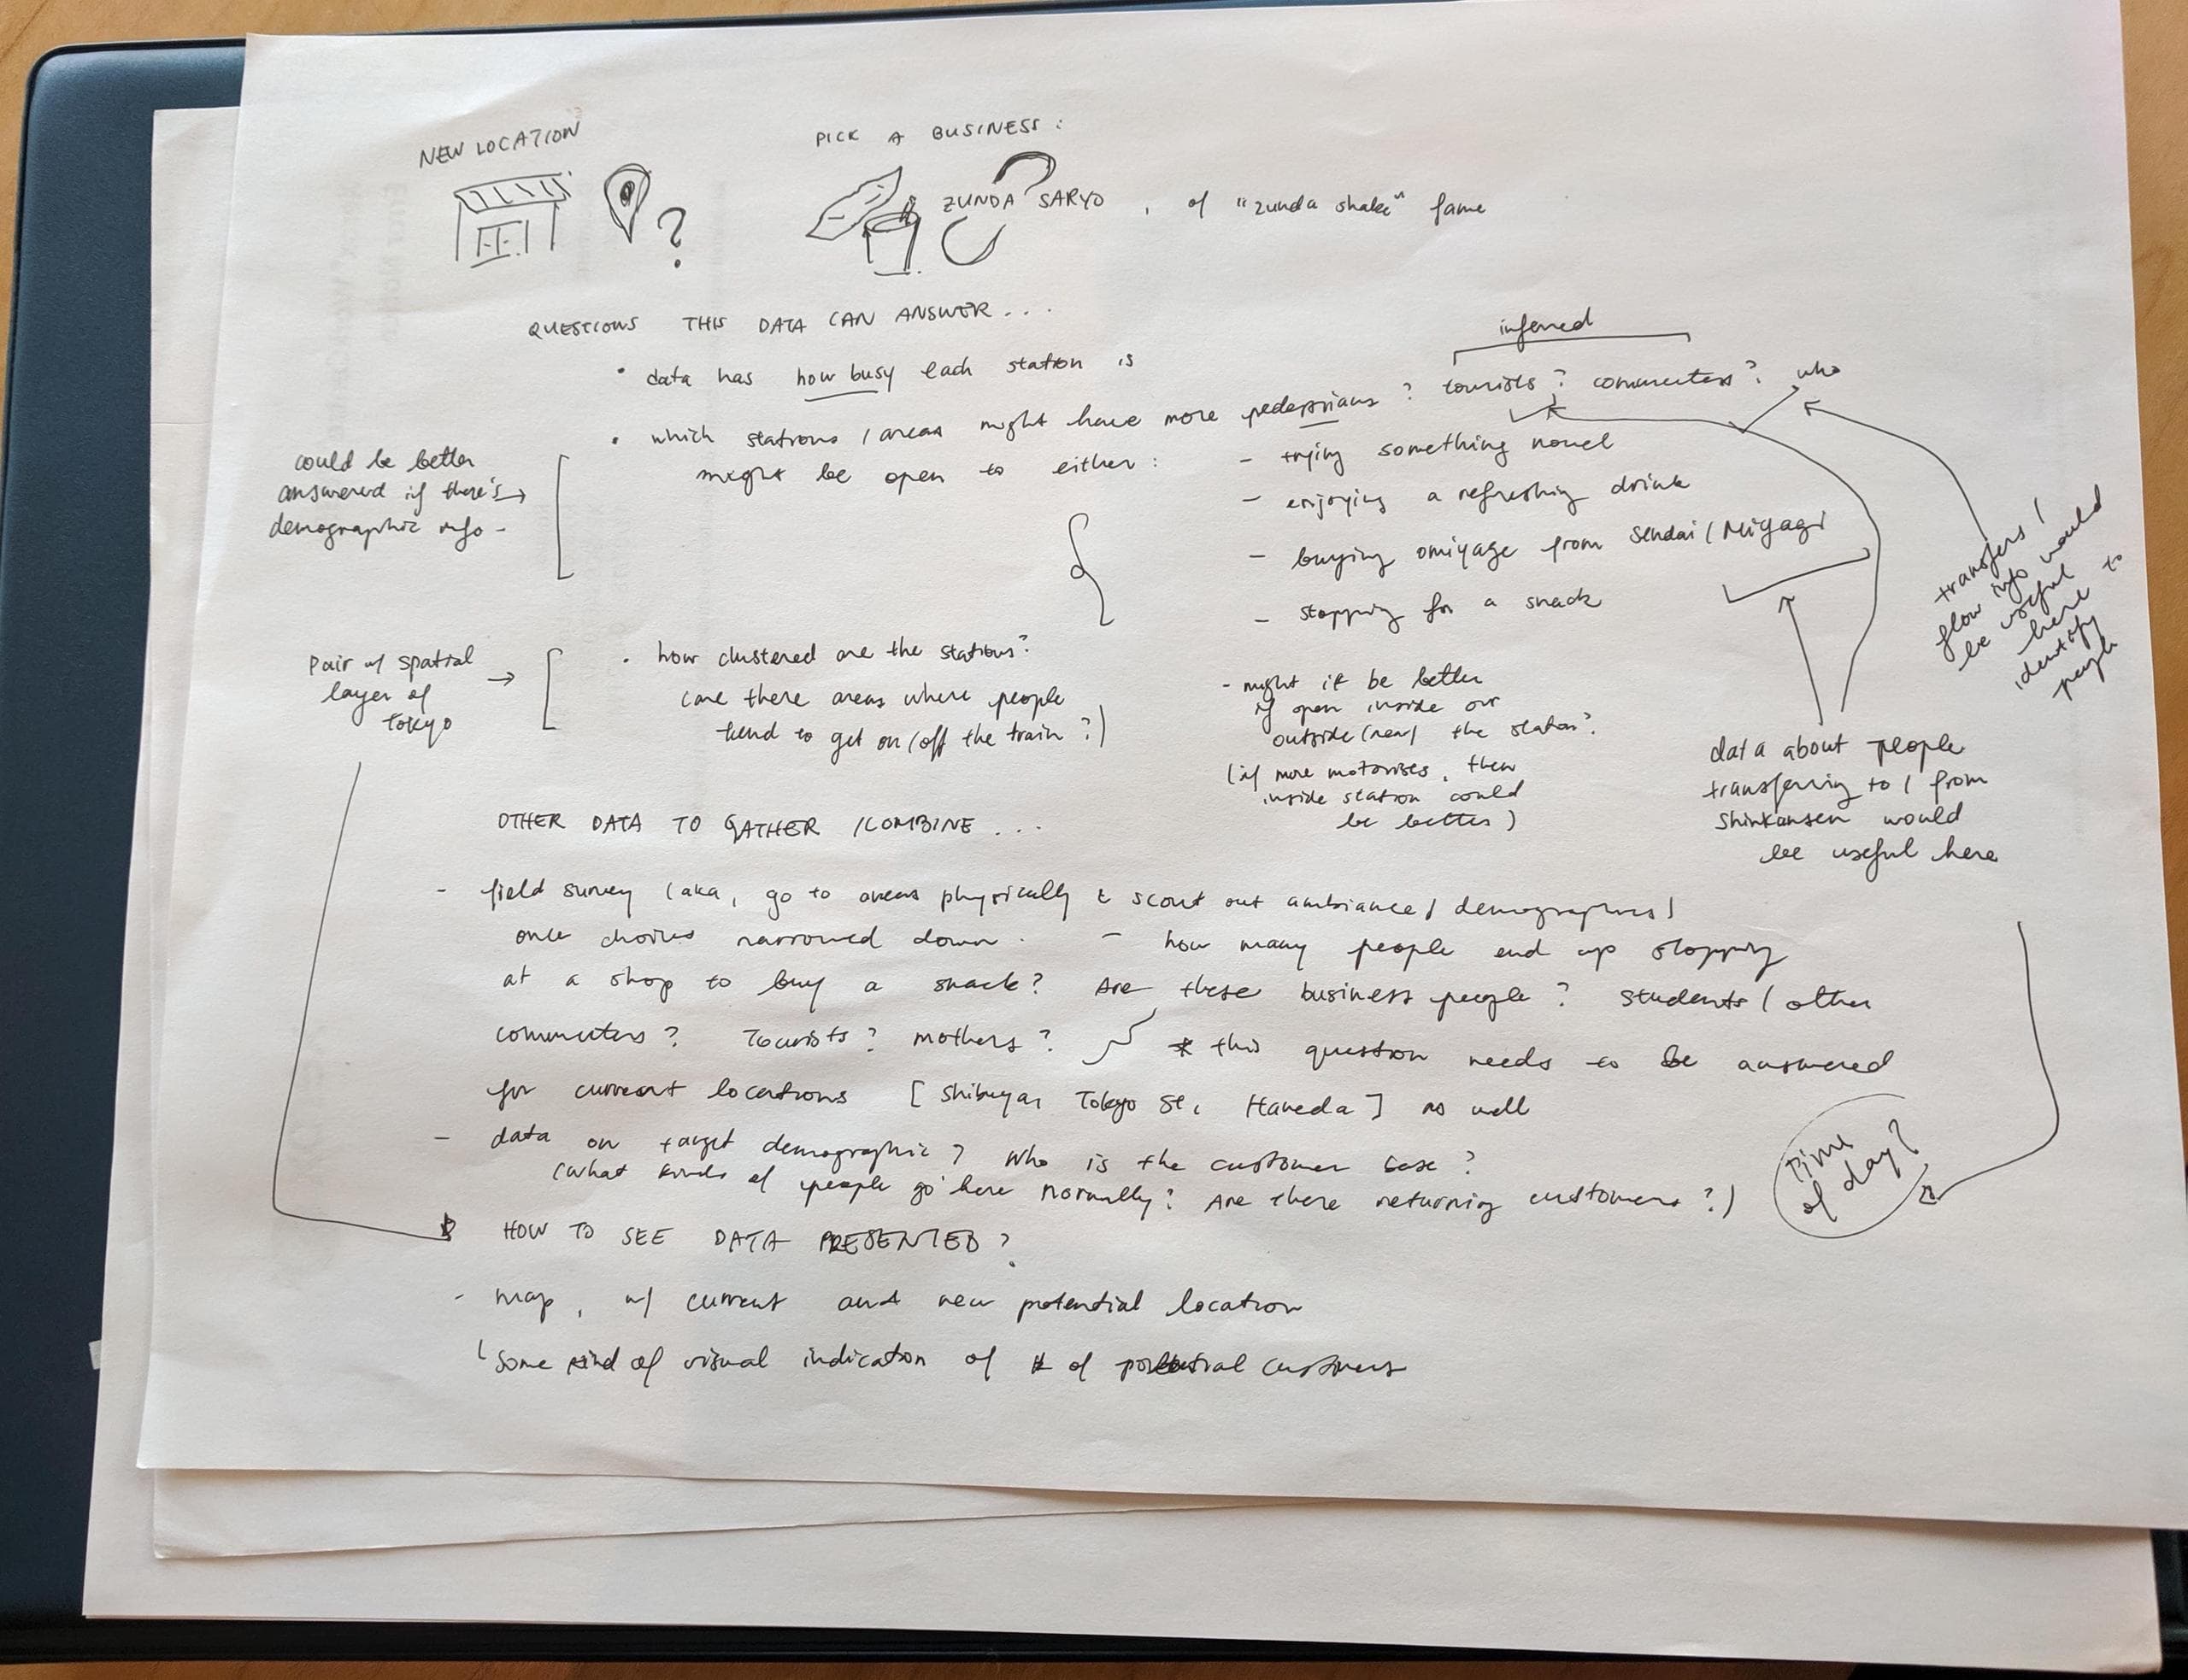 NEW LOCATION
?
PICK A BUSINESS :
ZUNDA SARYO , of "zunda shake" fame
QUESTIONS THIS DATA CAN ANSWER . . .
• data has how busy each station is
inferred
• which stations / areas might have more pedestrians ? tourists ? commuters ? who
might be open to either :
- trying something novel
- enjoying a refreshing drink
- buying omiyage from Sendai / Miyagi
- stopping for a snack
could be better
answered if there's →
demographic info -
transfers /
flow info would
be useful
here to
identify
people
Pair w/ spatial
layer of
Tokyo
→
• how clustered are the stations?
(are there areas where people
tend to get on / off the train ?)
- might it be better
if open inside or
outside (near) the station?
(if more motorises, then
inside station could
be better)
data about people
transferring to / from
Shinkansen would
be useful here
OTHER DATA TO GATHER / COMBINE . . .
- field survey (aka, go to areas physically & scout out ambiance / demographics)
once choices narrowed down. - how many people end up stopping
at a shop to buy a snack? Are these business people ? Students / other
commuters ? Tourists ? mothers ? * this question needs to be answered
for current locations [ Shibuya, Tokyo St, Haneda ] as well
- data on target demographic ? Who is the customer base ?
(what kinds of people go here normally ? Are there returning customers ?)
time
of day?
HOW TO SEE DATA PRESENTED ?
- map, w/ current and new potential location
some kind of visual indication of # of potential customers